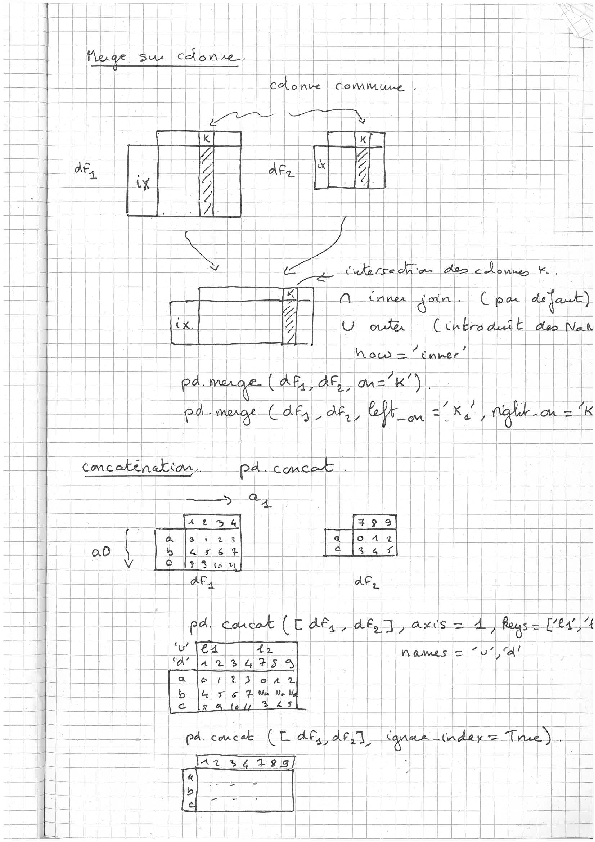 Merge sur colonne.
colonne commune.
K K
df1 ix df2 ix
intersection des colonnes K.
K ∩ inner join. (par défaut)
ix. ∪ outer (introduit des NaN
how = 'inner'
pd.merge (df1, df2, on='K').
pd.merge (df1, df2, left_on = 'K1', right_on = 'K
concaténation. pd.concat.
a1
a0
1 2 3 4 7 8 9
a 0 1 2 3 a 0 1 2
b 4 5 6 7 c 3 4 5
c 8 9 10 11
df1 df2
pd.concat ([df1, df2], axis = 1, keys = ['l1', 'l
'u' l1 l2 names = 'u','d'
'd' 1 2 3 4 7 8 9
a 0 1 2 3 0 1 2
b 4 5 6 7 Na Na Na
c 8 9 10 11 3 4 5
pd.concat ([df1, df2], ignore_index = True).
1 2 3 4 7 8 9
a
b
c